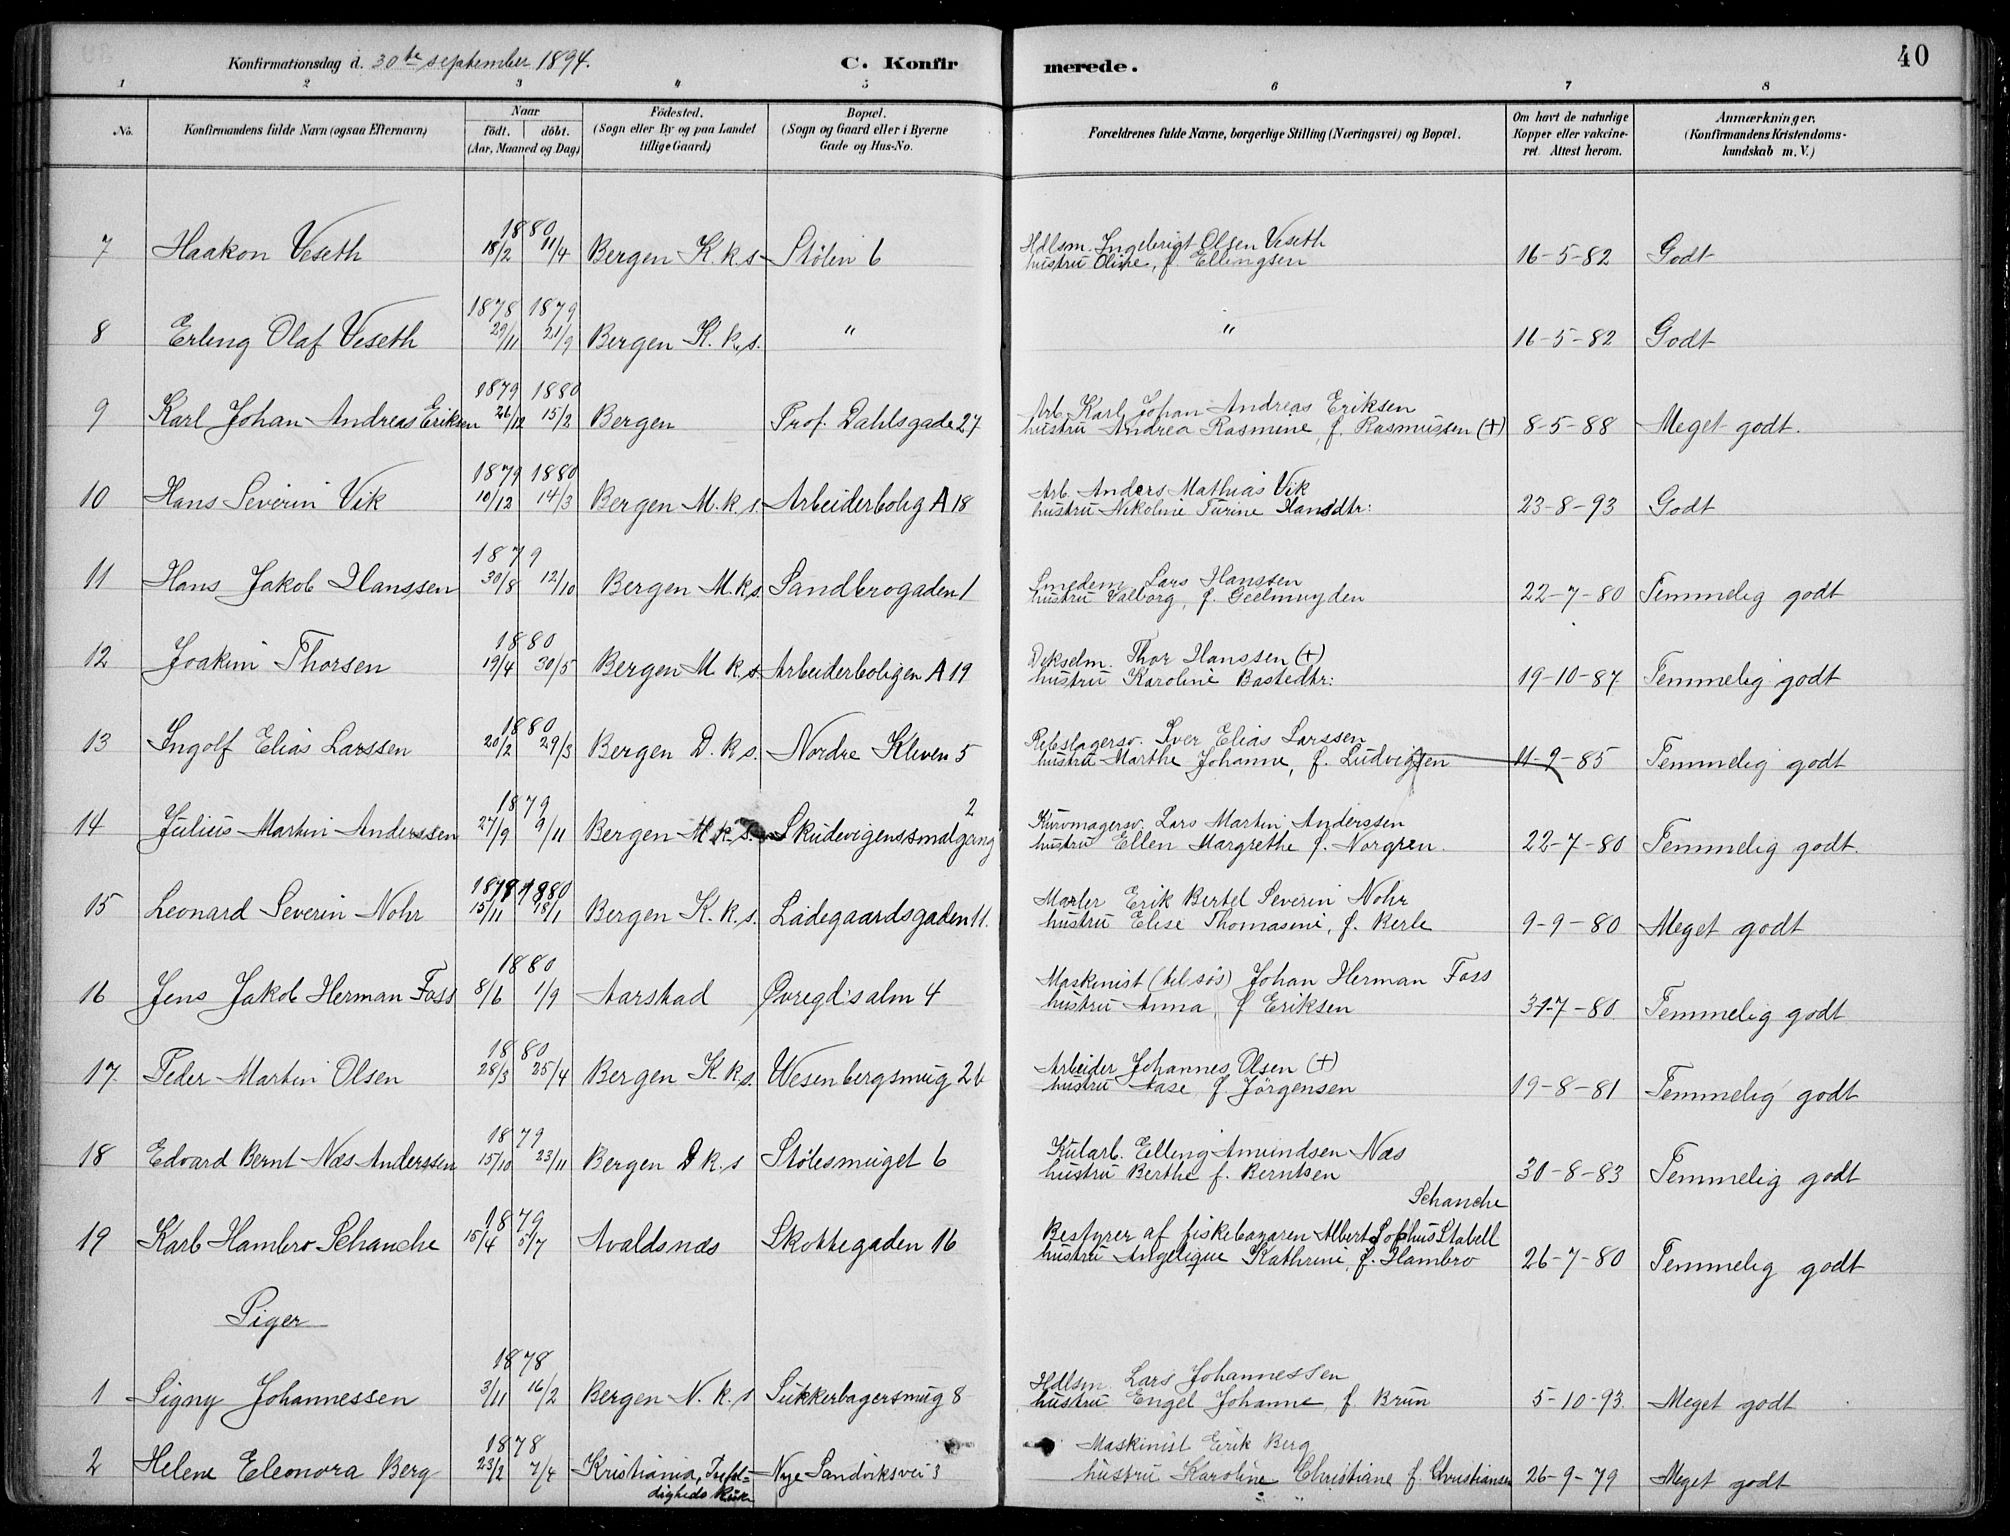 Konfirmationsdag d. 30te september 1894. C. Konfirmerede. 40
1 2 3 4 5 6 7 8
No. Konfirmandens fulde Navn (ogsaa Efternavn) Naar født. døbt. (Aar, Maaned og Dag) Fødested. (Sogn eller By og paa Landet tillige Gaard) Bopæl. (Sogn og Gaard eller i Byerne Gade og Hus-No. Forældrenes fulde Navne, borgerlige Stilling (Næringsvei) og Bopæl. Om havt de naturlige Kopper eller vakcineret. Attest herom. Anmærkninger. (Konfirmandens Kristendomskundskab m. V.)
7 Haakon Veseth 1880 18/2 11/4 Bergen K.k.s Stølen 6 Hdlsm. Ingebrigt Olsen Veseth
hustru Oline, f. Ellingsen 16-5-82 Godt
8 Erling Olaf Veseth 1878 29/11 1879 21/9 Bergen K.k.s. " " 16-5-82 Godt
9 Karl Johan Andreas Eriksen 1879 26/12 1880 15/2 Bergen Prof. Dahlsgade 27 Arb. Karl Johan Andreas Eriksen
hustru Andrea Rasmine, f. Rasmussen (+) 8-5-88 Meget godt.
10 Hans Severin Vik 1879 10/12 1880 14/3 Bergen M.k.s. Arbeiderbolig A 18 Arb. Anders Mathias Vik
hustru Nikoline Turine Hansdtr: 23-8-93 Godt
11 Hans Jakob Hanssen 1879 30/8 12/10 Bergen M.k.s. Sandbrogaden 1 Smedem. Lars Hanssen
hustru Valborg, f. Geelmuyden 22-7-80 Temmelig godt
12 Joakim Thorsen 1880 19/4 30/5 Bergen M.k.s. Arbeiderboligen A 19 Dækselm. Thor Hanssen (+)
hustru Karoline Bastedtr: 19-10-87 Temmelig godt
13 Ingolf Elias Larssen 1880 20/2 29/3 Bergen D.k.s. Nordre Kleven 5 Rebslagersv. Iver Elias Larssen
hustru Marthe Johanne, f. Ludvigsen 11-9-85 Temmelig godt
14 Julius Martin Anderssen 1879 27/9 9/11 Bergen M.k.s. Skudevigenssmalgang 2 Kurvmagersv. Lars Martin Anderssen
hustru Ellen Margrethe f. Norgren. 22-7-80 Temmelig godt.
15 Leonard Severin Nohr 1879 15/11 1880 18/1 Bergen K.k.s. Ladegaardsgaden 11. Maler Erik Bertel Severin Nohr
hustru Elise Thomasine, f. Berle 9-9-80 Meget godt
16 Jens Jakob Herman Foss 1880 8/6 1/9 Aarstad Øvregdsalm 4 Maskinist (til søs) Johan Herman Foss
hustru Anna f Eriksen 31-7-80. Temmelig godt
17. Peder Martin Olsen 1880 28/3 25/4 Bergen K.k.s. Wesenbergsmug 26 Arbeider Johannes Olsen (+)
hustru Aase f. Jørgensen 19-8-81 Temmelig godt
18 Edvard Bernt Næs Anderssen 1879 15/10 23/11 Bergen D k.s Stølesmuget 6 Kularb. Elling Amundsen Næs
hustru Berthe f. Berntsen 30-8-83 Temmelig godt
19 Karl Hambro Schanche 1879 15/4 5/7 Avaldsnæs Skottegaden 16 Schanche
Bestyrer af fiskebazaren Albert Sophus Stabell
hustru Angelique Kathrine, f. Hambro 26-7-80 Temmelig godt
Piger
1 Signy Johannessen 1878 3/11 16/2 Bergen N.k.s Sukkerbagersmug 8 Hdlsm. Lars Johannessen
hustru Engel Johanne f. Brun 5-10-93. Meget godt
2 Helene Eleonora Berg 1878 23/2 7/4 Kristiania, Trefoldigheds kirke Nye Sandviksvei 3 Maskinist Erik Berg
hustru Karoline Christiane f. Christiansen 26-9-79 Meget godt